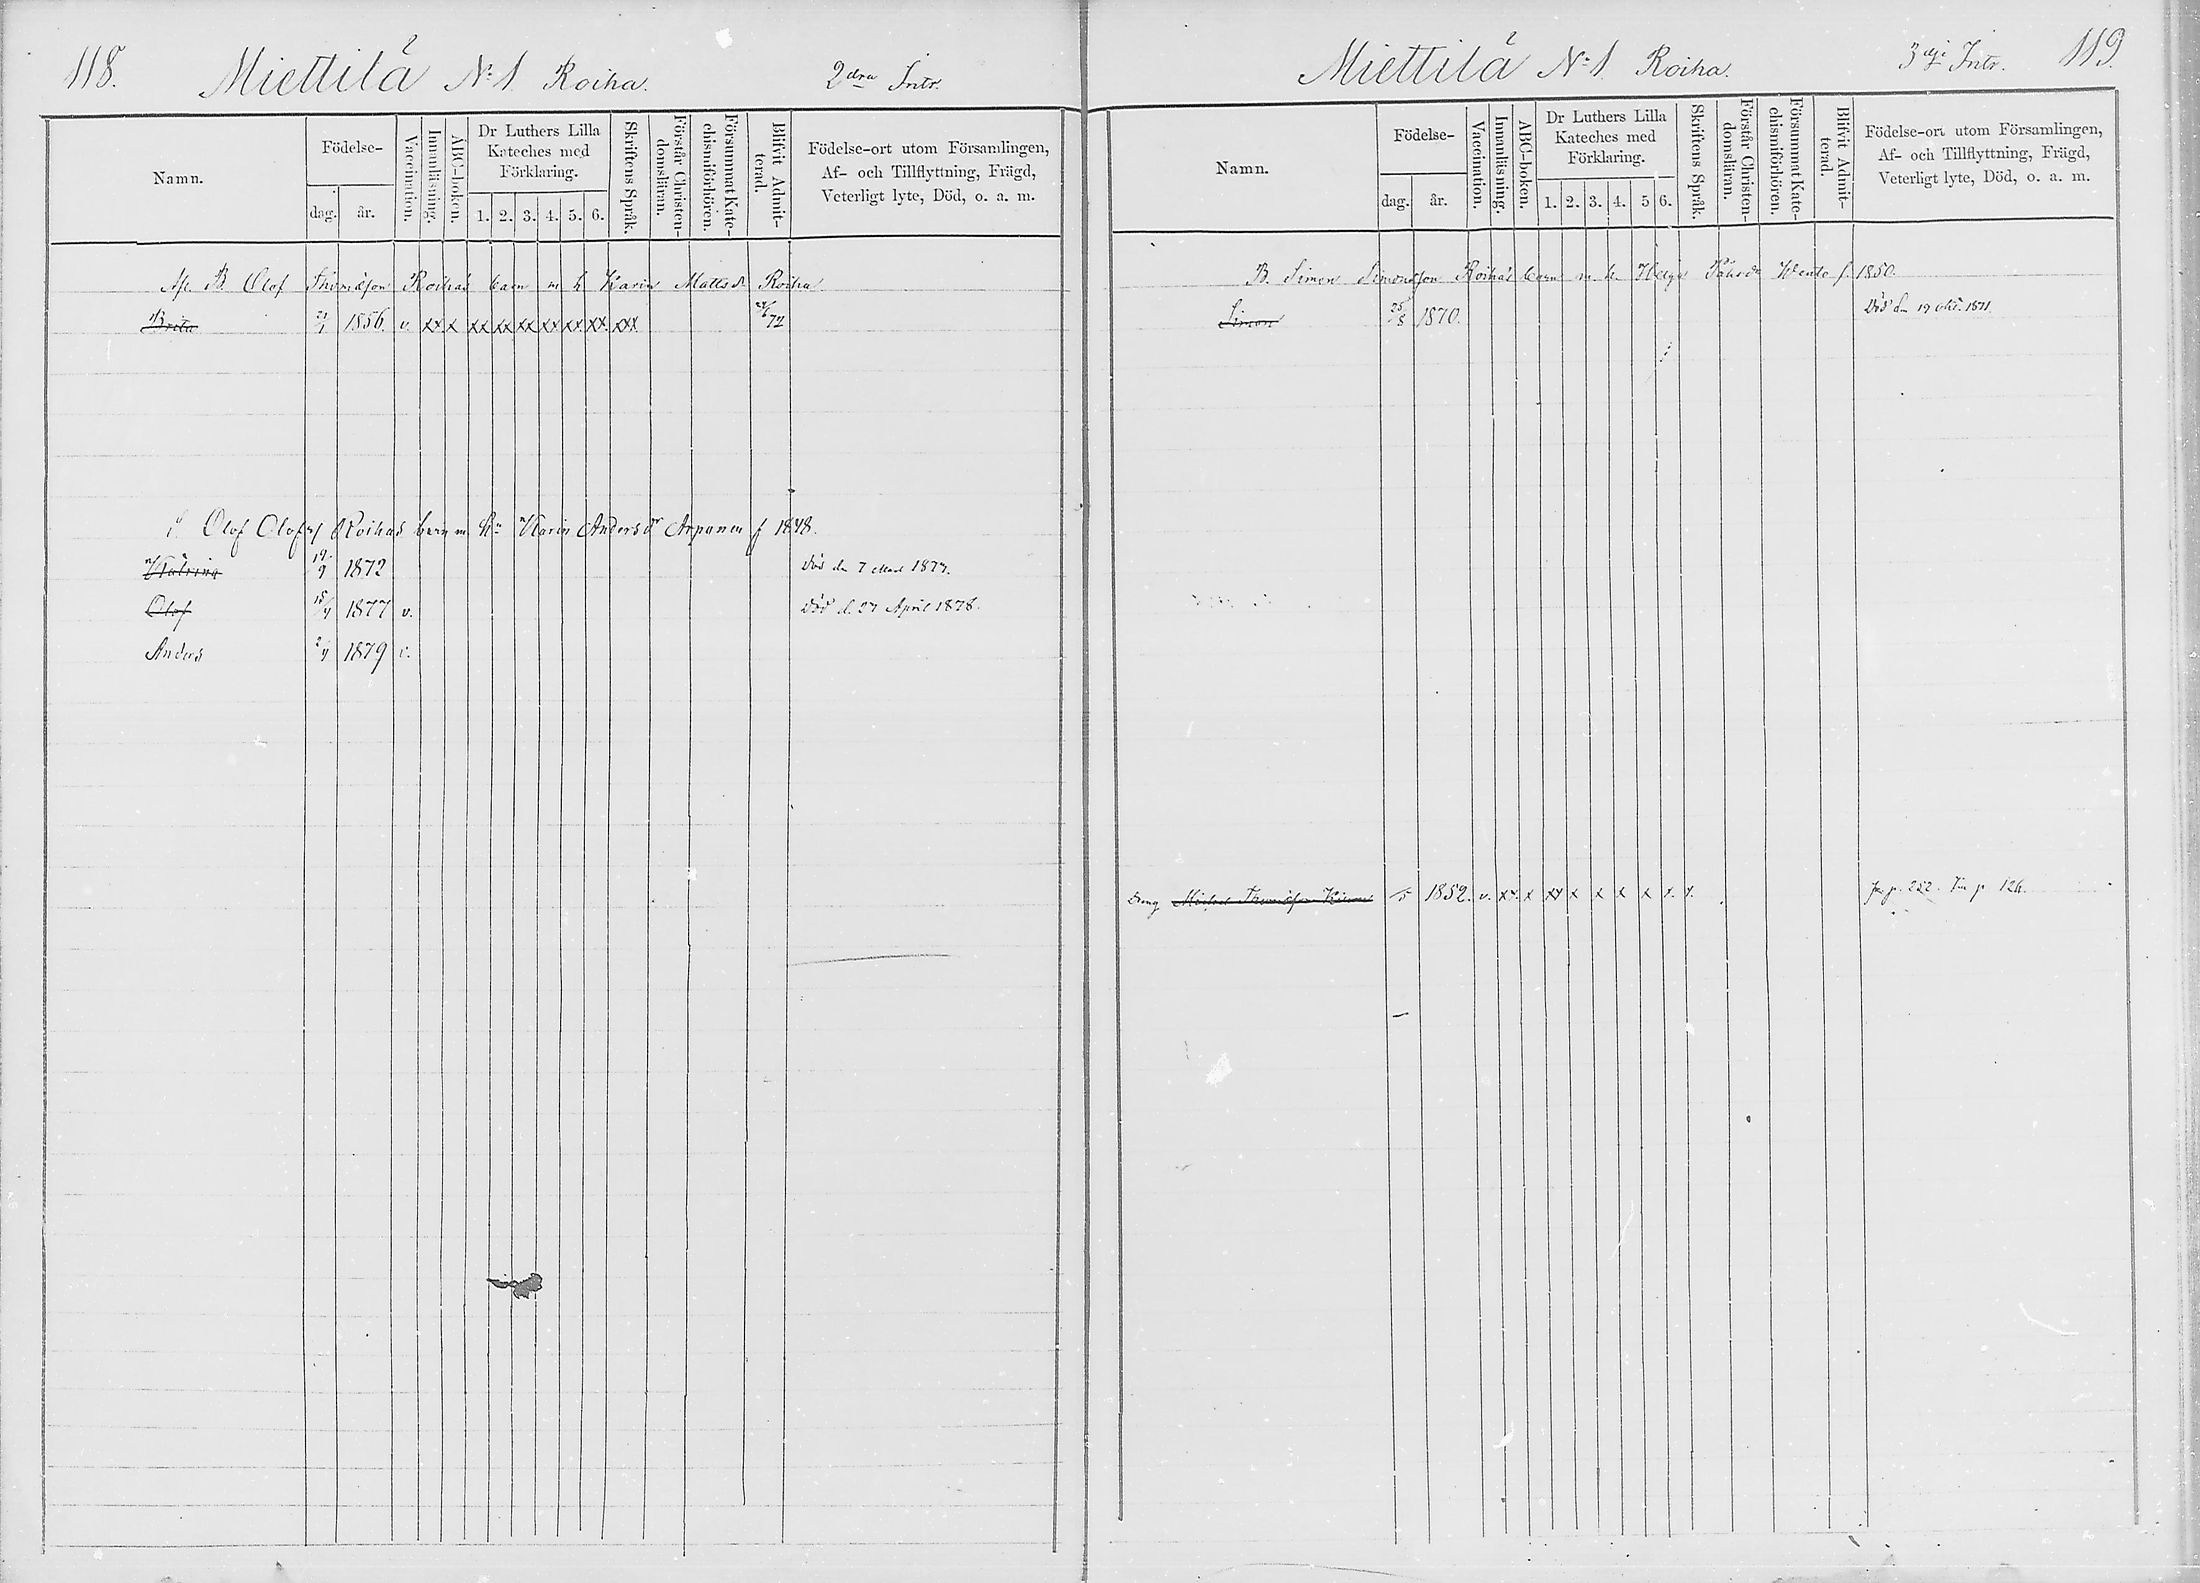 118. Miettilä No 1. Roiha. 2dra Intr.
Namn.
Födelse-
dag. år.
Vaccination.
Innanläsning.
ABC-boken.
Dr Luthers Lilla
Kateches med
Förklaring.
1. 2. 3. 4. 5. 6.
Skriftens Språk.
Förstår Christen-
domsläran.
Försummat Kate-
chismiförhören.
Blifvit Admit-
terad.
Födelse-ort utom Församlingen,
Af- och Tillflyttning, Frägd,
Veterligt lyte, Död, o. a. m.
B. Olof Thomasson Roihas barn m h Karin Mattsdr Roiha
Brita 1856. v. xx x xx xx xx xx xx xx xxx 72
Olof Olofss Roihas barn m. hu Karin Andersdr Arpanen f 1848.
Katrina 1872
Olof 15/4 1877 v. Död d. 27 April 1878.
Anders 1879 v.
Miettilä No 1 Roiha. 3dje Intr. 119.
Namn.
Födelse-
dag. år.
Vaccination.
Innanläsning.
ABC-boken.
Dr Luthers Lilla
Kateches med
Förklaring.
1. 2. 3. 4. 5 6.
Skriftens Språk.
Förstår Christen-
domsläran.
Försummat Kate-
chismiförhören.
Blifvit Admit-
terad.
Födelse-ort utom Församlingen,
Af- och Tillflyttning, Frägd,
Veterligt lyte, Död, o. a. m.
B. Simon Simonsson Roihas barn m. h. Helga f. 1850.
Simon 25/8 1870. Död d. 19 1871.
Dreng 1852. v. xx. x xx x x x x x. x. p. 252. p. 126.